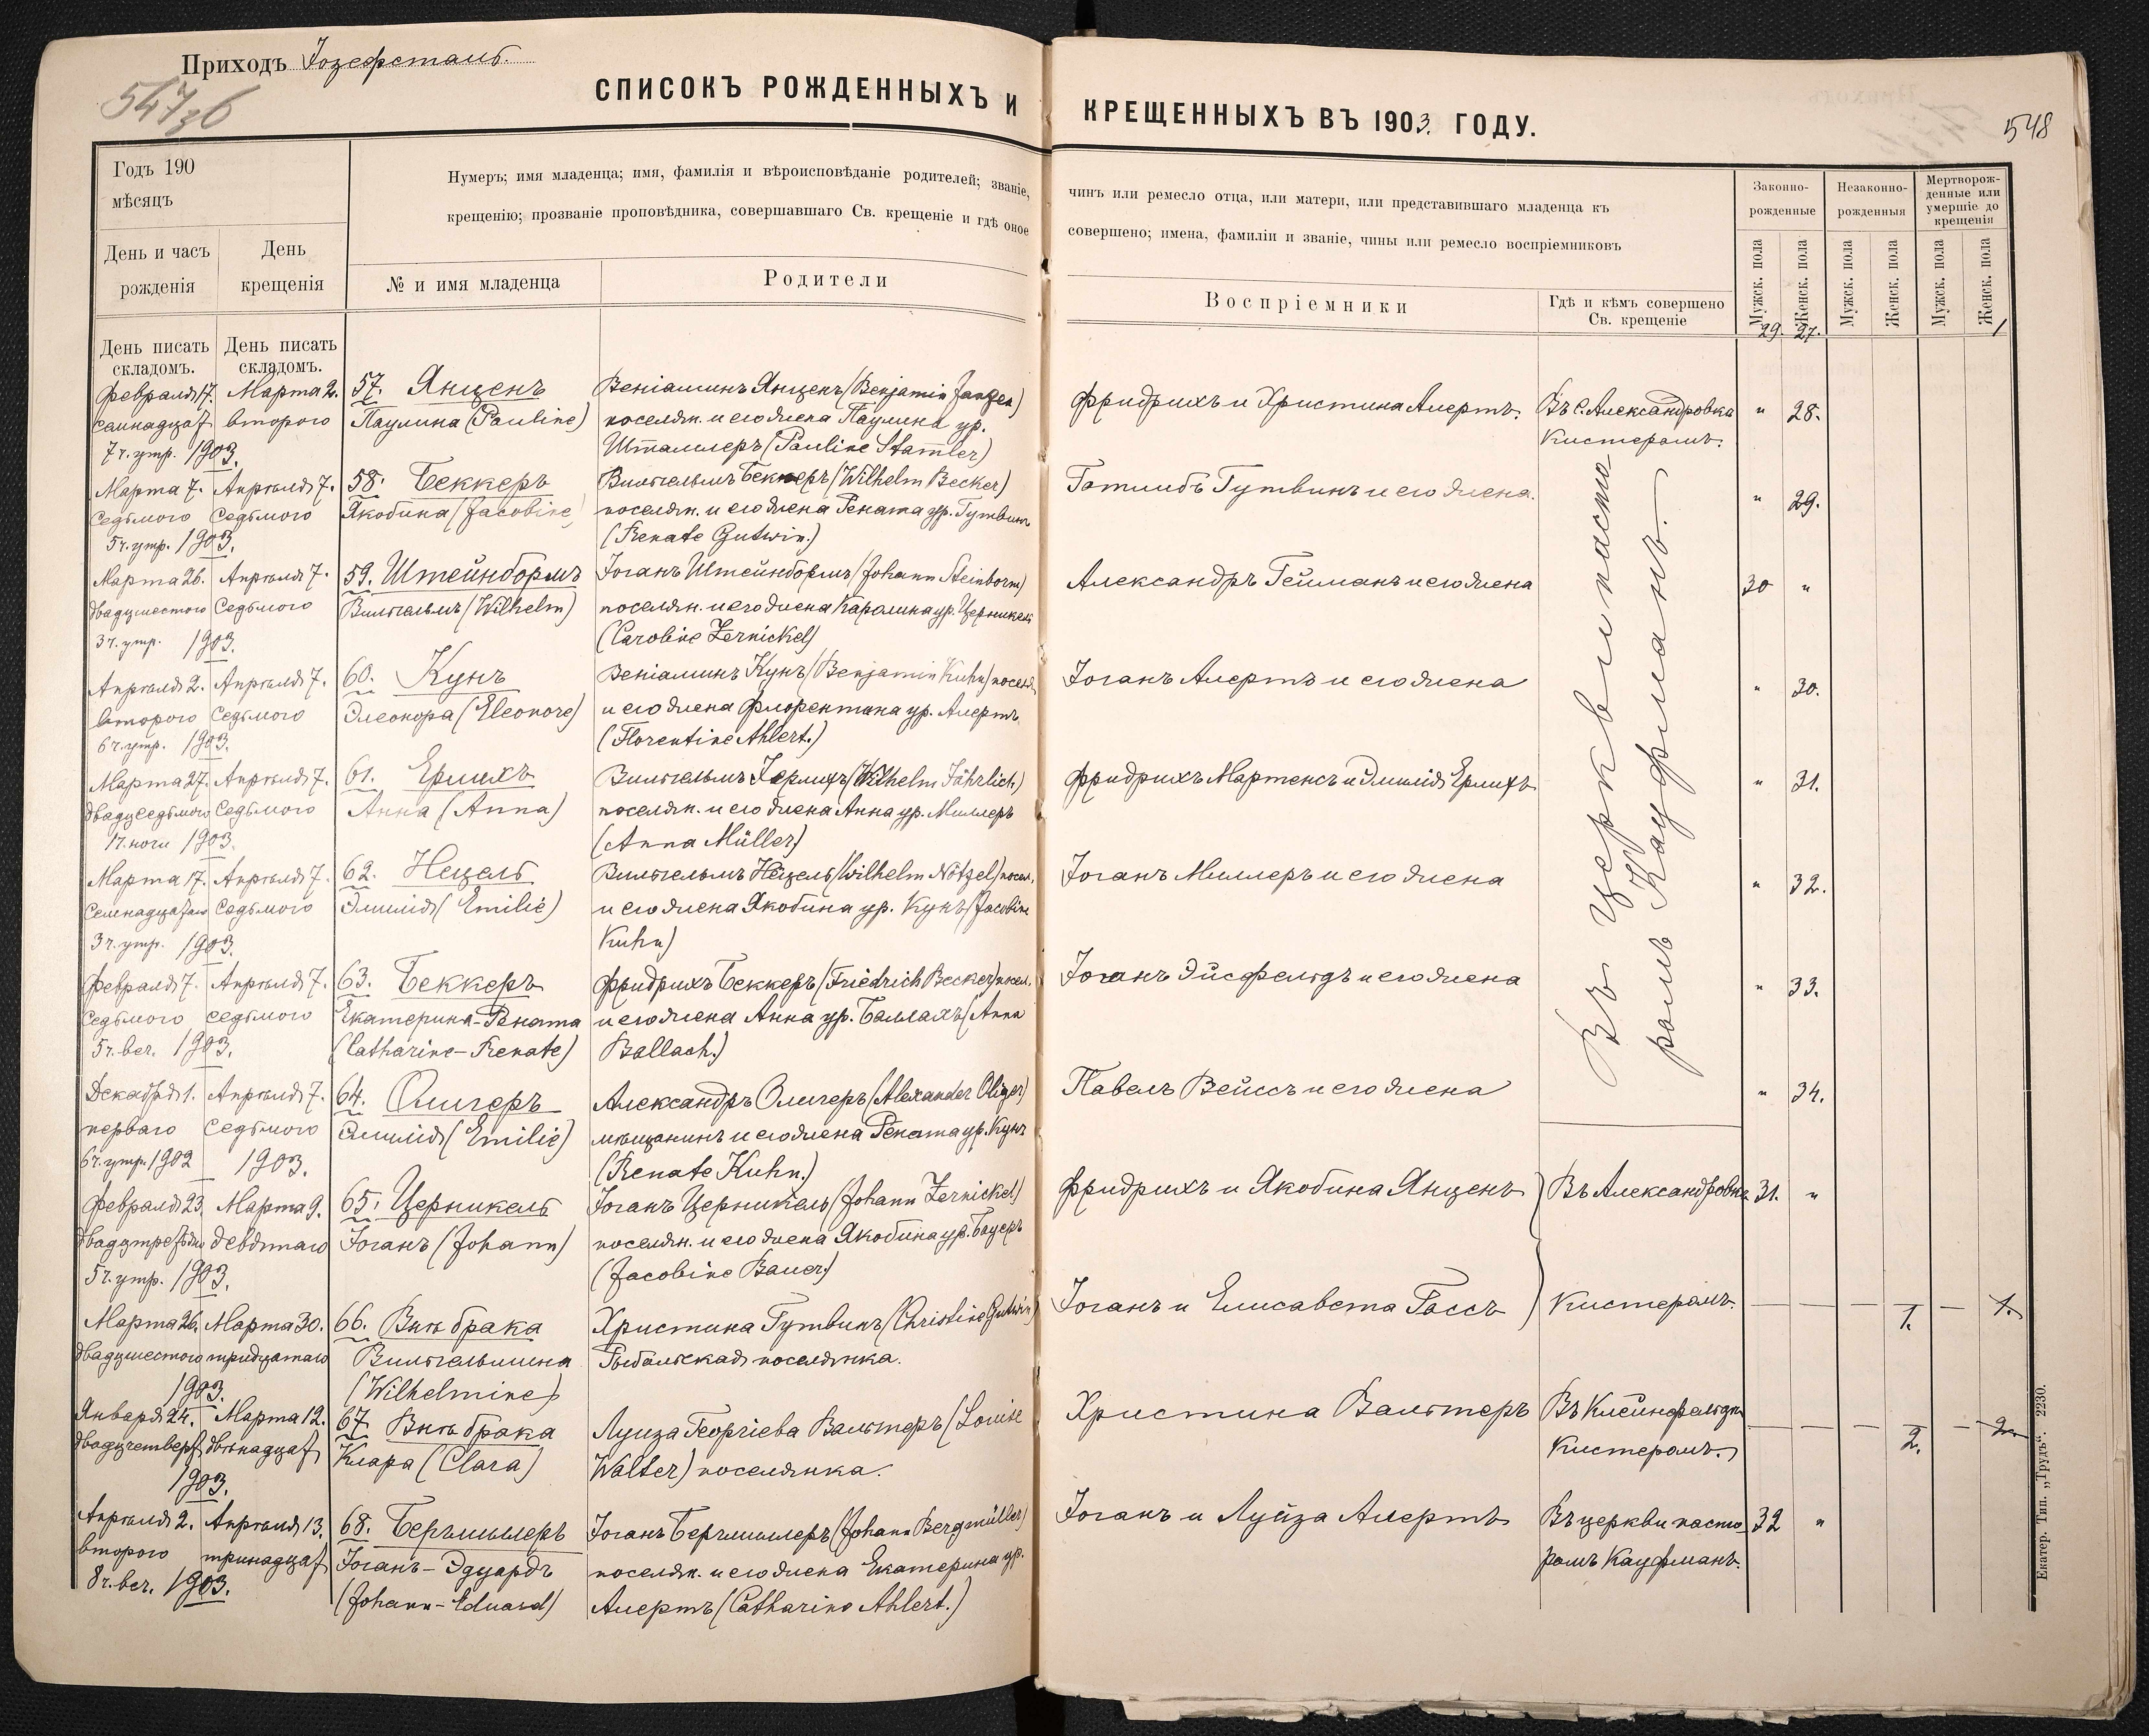 Приходъ Іозефсталь.
547об
СПИСОКЪ РОЖДЕННЫХЪ И КРЕЩЕННЫХЪ ВЪ 1903. ГОДУ.
548
Годъ 190
мѣсяцъ
День и часъ рожденія
День крещенія
Нумеръ; имя младенца; имя, фамилія и вѣроисповѣданіе родителей; званіе, чинъ или ремесло отца, или матери, или представившаго младенца къ
крещенію; прозваніе проповѣдника, совершавшаго Св. крещеніе и гдѣ оное совершено; имена, фамиліи и званіе, чины или ремесло воспріемниковъ
№ и имя младенца
Родители
Воспріемники
Гдѣ и кѣмъ совершено Св. крещеніе
Законно-рожденные
Незаконно-рожденныя
Мертворож-денные или умершіе до крещенія
Мужск. пола
Женск. пола
Мужск. пола
Женск. пола
Мужск. пола
Женск. пола
День писать складомъ.
День писать складомъ.
29. 27. 1
Февраля 17. Марта 2. 57. Янценъ Веніаминъ Янценъ (Benjamin Janzen) Фридрихъ и Христина Алертъ. Въ с. Александровка " 28.
семнадцат второго Паулина (Pauline) поселян. и его жена Паулина ур. Кистеромъ.
7 ч. утр. 1903. Штамлеръ (Pauline Stamler)
Марта 7. Апрѣля 7. 58. Беккеръ Вильгельмъ Беккеръ (Wilhelm Becker) Готлибъ Гутвинъ и его жена. " 29.
седьмого седьмого Якобина (Jacobine) поселян. и его жена Рената ур. Гутвинъ
5 ч. утр. 1903. (Renate Gutwin.)
Марта 26. Апрѣля 7. 59. Штейнбормъ Іоганъ Штейнбормъ (Johann Steinborm) Александръ Гейманъ и его жена 30 "
двадцшестого седьмого Вильгельмъ (Wilhelm) поселян. и его жена Каролина ур. Церникель
3 ч. утр. 1903. (Caroline Zernickel)
Апрѣля 2. Апрѣля 7. 60. Кунъ Веніаминъ Кунъ (Benjamin Kuhn) поселян. Іоганъ Алертъ и его жена " 30.
второго седьмого Элеонора (Eleonore) и его жена Флорентина ур. Алертъ
6 ч. утр. 1903. (Florentine Ahlert.)
Марта 27. Апрѣля 7. 61. Ерлихъ Вильгельмъ Ерлихъ (Wilhelm Jährlich.) Фридрихъ Мартенсъ и Эмилія Ерлихъ " 31.
двадцседьмого седьмого Анна (Anna) поселян. и его жена Анна ур. Миллеръ
1 ч. ночи 1903. (Anna Müller)
Марта 17. Апрѣля 7. 62. Нецель Вильгельмъ Нецель (Wilhelm Nötzel) посел. Іоганъ Миллеръ и его жена " 32.
седьмого Эмилія (Emilie) и его жена Якобина ур. Кунъ (Jacobine
3 ч. утр. 1903. Kuhn)
Февраля 7. Апрѣля 7. 63. Беккеръ Фридрихъ Беккеръ (Friedrich Becker) посел. Іоганъ Эйсфельдъ и его жена " 33.
седьмого седьмого Екатерина-Рената и его жена Анна ур. Баллахъ (Anna
5 ч. веч. 1903. (Catharine-Renate) Ballach.)
Декабря 1. Апрѣля 7. 64. Олигеръ Александръ Олигеръ (Alexander Oliger) Павелъ Вейссъ и его жена " 34.
перваго седьмого Эмилія (Emilie) мѣщанинъ и его жена Рената ур. Кунъ
6 ч. утр. 1902 1903. (Renate Kuhn.)
Въ церкви пасто
ромъ Кауфманъ.
Февраля 23. Марта 9. 65. Церникель Іоганъ Церникель (Johann Zernickel) Фридрихъ и Якобина Янценъ Въ Александровка 31. "
девятаго Іоганъ (Johann) поселян. и его жена Якобина ур. Бауеръ
5 ч. утр. 1903. (Jacobine Bauer)
Марта 26. Марта 30. 66. Внѣ брака Христина Гутвинъ (Christine Gutwin) Іоганъ и Елисавета Гассъ Кистеромъ. — — — 1. — 1.
двадцшестого тридцатаго Вильгельмина Рыбальская поселянка.
1903. (Wilhelmine)
Января 24. Марта 12. 67. Внѣ брака Луиза Георгіева Вальтеръ (Louise Христина Вальтеръ Въ Клейнфельдъ — — — 2. — 2.
двадцчетверт двѣнадцат Клара (Clara) Walter) поселянка. Кистеромъ.
1903.
Апрѣля 2. Апрѣля 13. 68. Бергмиллеръ Іоганъ Бергмиллеръ (Johann Bergmüller) Іоганъ и Луиза Алертъ Въ церкви пасто 32 "
второго тринадцат Іоганъ-Эдуардъ поселян. и его жена Екатерина ур. ромъ Кауфманъ.
8 ч. веч. 1903. (Johann-Eduard) Алертъ (Catharine Ahlert.)
Екатер. Тип. „Трудъ". 2230.